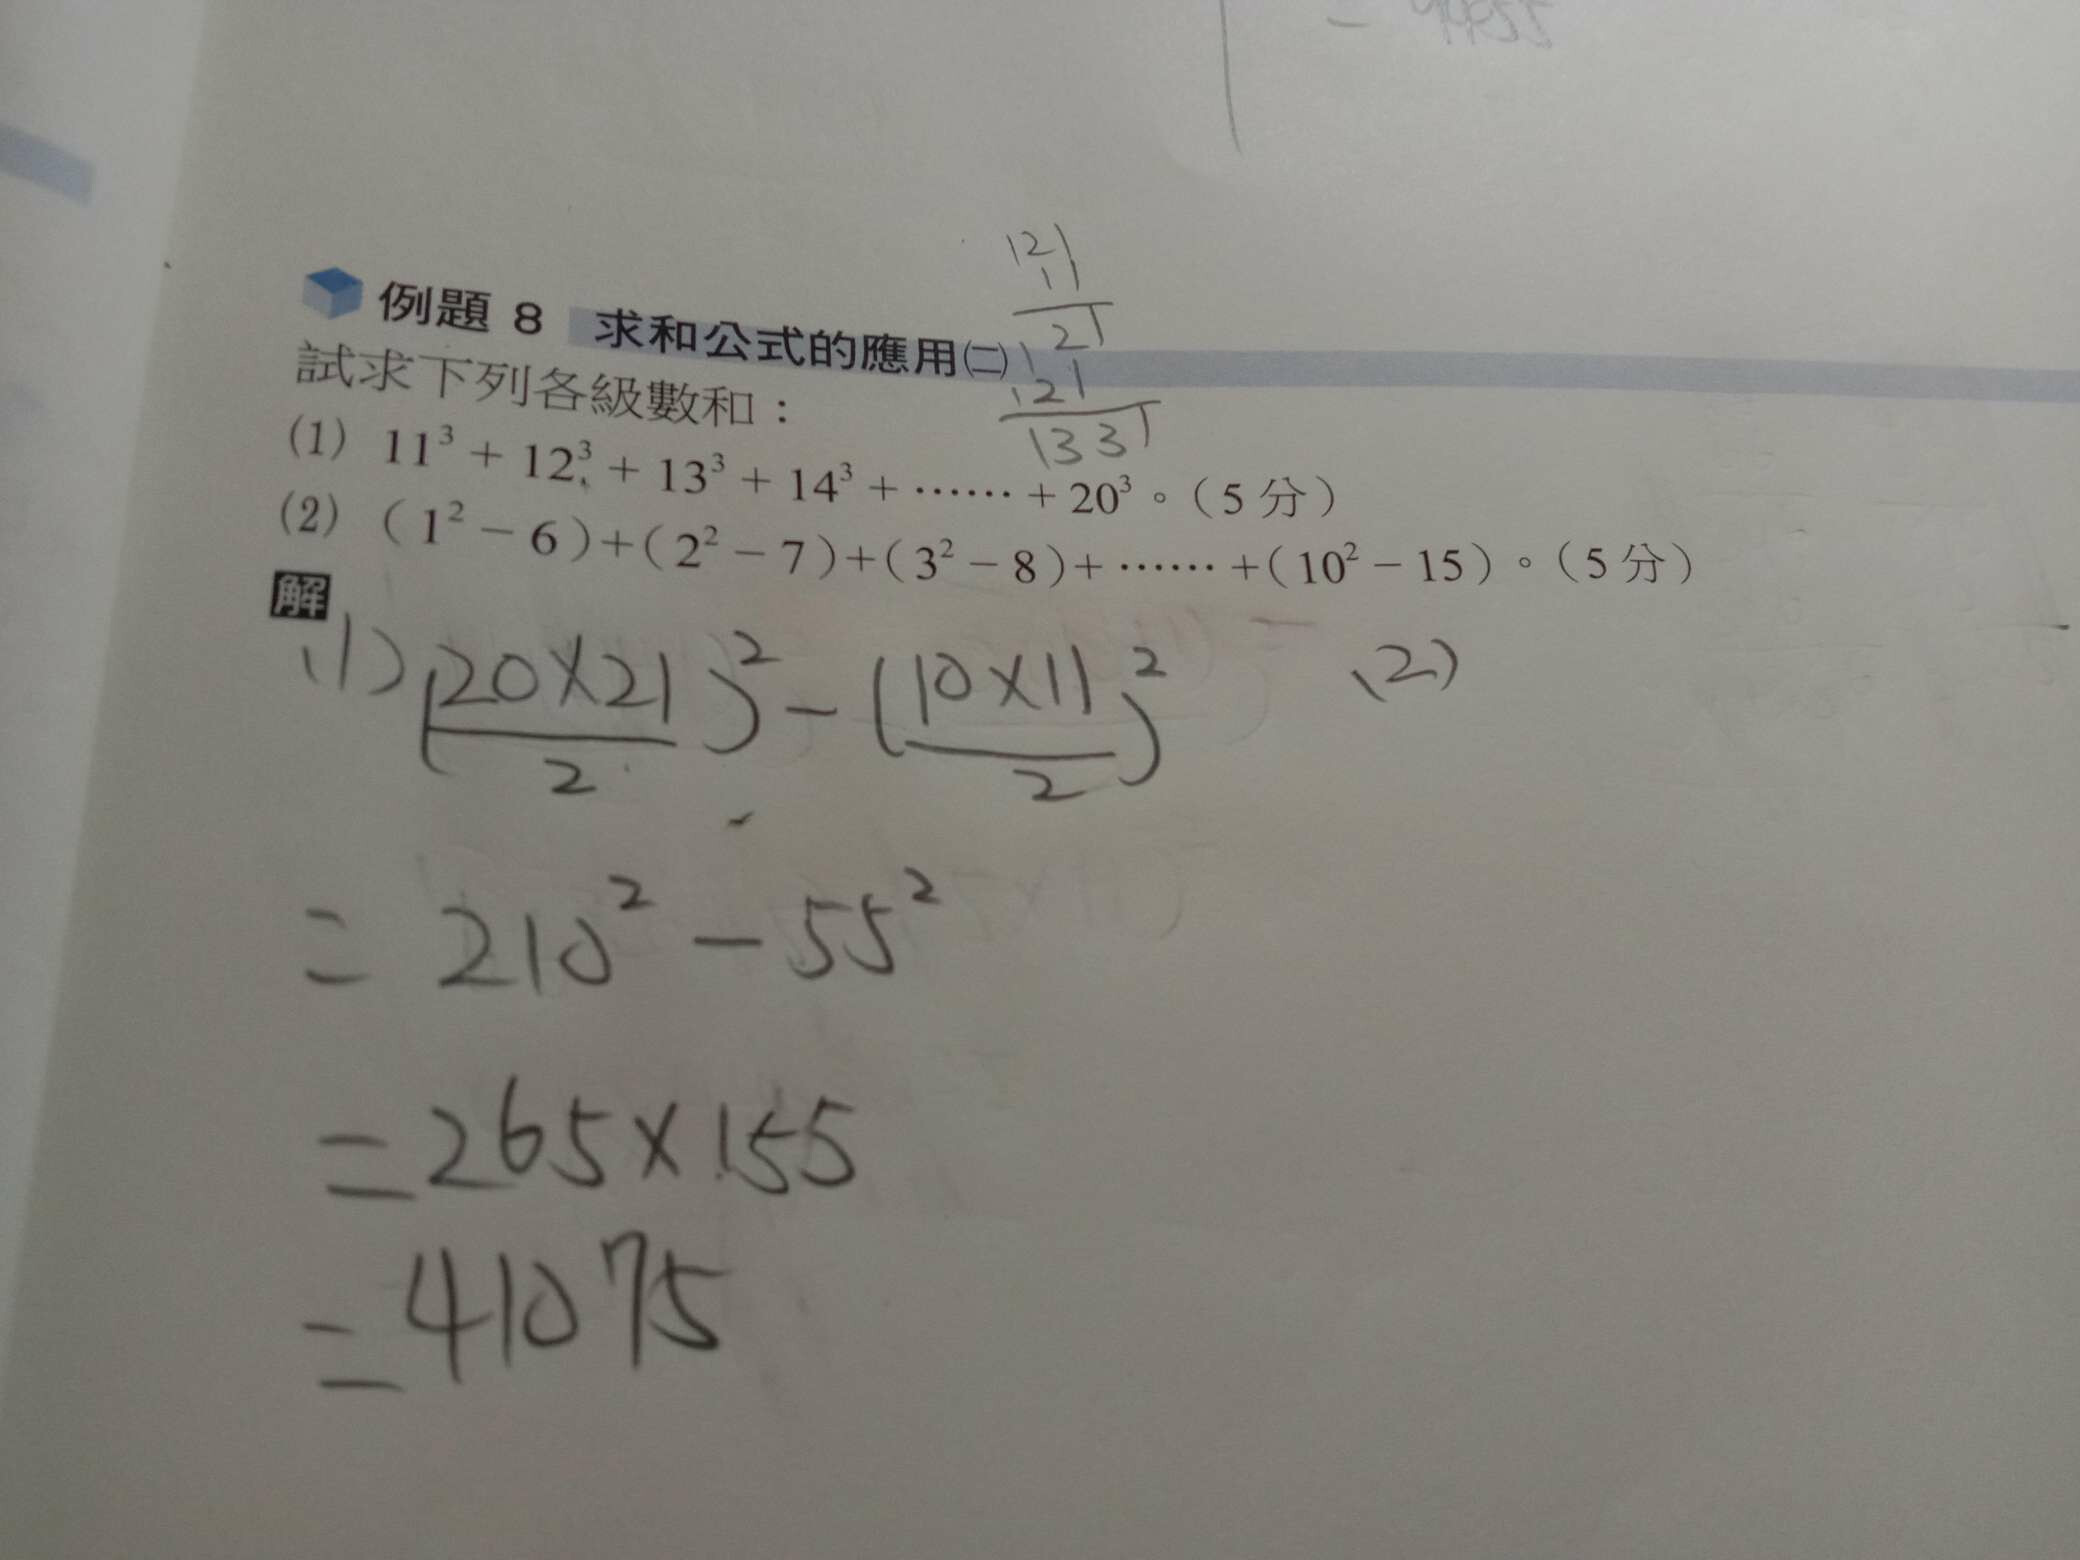 例題 8 求和公式的應用㈡
試求下列各級數和：
(1) 11³ + 12³ + 13³ + 14³ + …… + 20³。（5 分）
(2) （1² − 6）+（2² − 7）+（3² − 8）+ …… +（10² − 15）。（5 分）
121
11
121
121
1331
解
(1) (20×21/2)² − (10×11/2)²
= 210² − 55²
= 265×155
= 41075
(2)